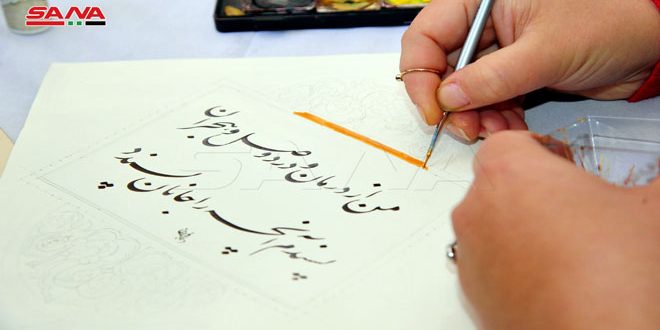 SANA
من از درمان و درد و وصل و هجران
پسندم آنچه را جانان پسندد
SANA